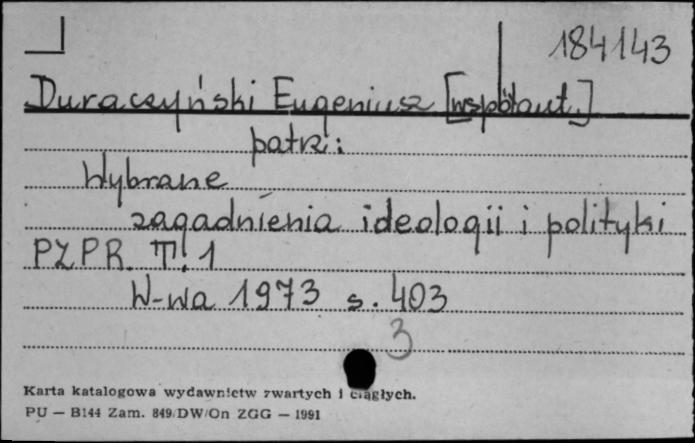 184143
Duraczyński Eugeniusz [współaut.]
patrz:
Wybrane
zagadnienia ideologii i polityki
PZPR. T. 1
W-wa 1973 s. 403
3
Karta katalogowa wydawnictw zwartych i ciągłych.
PU — B144 Zam. 849/DW/On ZGG — 1991